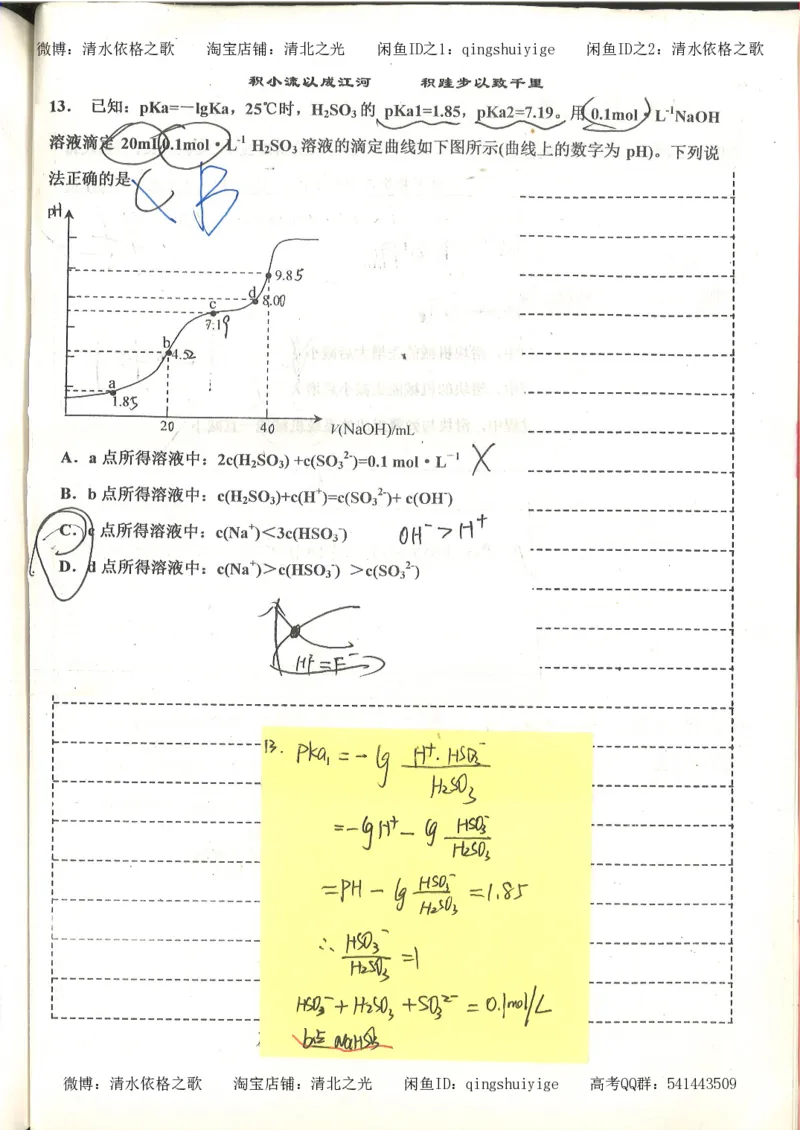 微博：清水依格之歌 淘宝店铺：清北之光 闲鱼ID之1：qingshuiyige 闲鱼ID之2：清水依格之歌
积小流以成江河 积跬步以致千里
13． 已知：pKa=－lgKa，25℃时，H₂SO₃的 pKa1=1.85，pKa2=7.19。用 0.1mol·L⁻¹NaOH
溶液滴定 20mL 0.1mol·L⁻¹ H₂SO₃溶液的滴定曲线如下图所示(曲线上的数字为 pH)。下列说
法正确的是 C B
pH
9.85
d 8.00
c
7.19
b
4.52
a
1.85
20 40 V(NaOH)/mL
A．a 点所得溶液中：2c(H₂SO₃) +c(SO₃²⁻)=0.1 mol·L⁻¹ X
B．b 点所得溶液中：c(H₂SO₃)+c(H⁺)=c(SO₃²⁻)+ c(OH⁻)
C．c 点所得溶液中：c(Na⁺)＜3c(HSO₃⁻) OH⁻ > H⁺
D．d 点所得溶液中：c(Na⁺)＞c(HSO₃⁻) ＞c(SO₃²⁻)
HF=F⁻
13. PKa₁ = - lg H⁺·HSO₃⁻ / H₂SO₃
= -lgH⁺ - lg HSO₃⁻ / H₂SO₃
= PH - lg HSO₃⁻ / H₂SO₃ = 1.85
∴ HSO₃⁻ / H₂SO₃ = 1
HSO₃⁻ + H₂SO₃ + SO₃²⁻ = 0.1mol/L
b点 NaHSO₃
微博：清水依格之歌 淘宝店铺：清北之光 闲鱼ID：qingshuiyige 高考QQ群：541443509